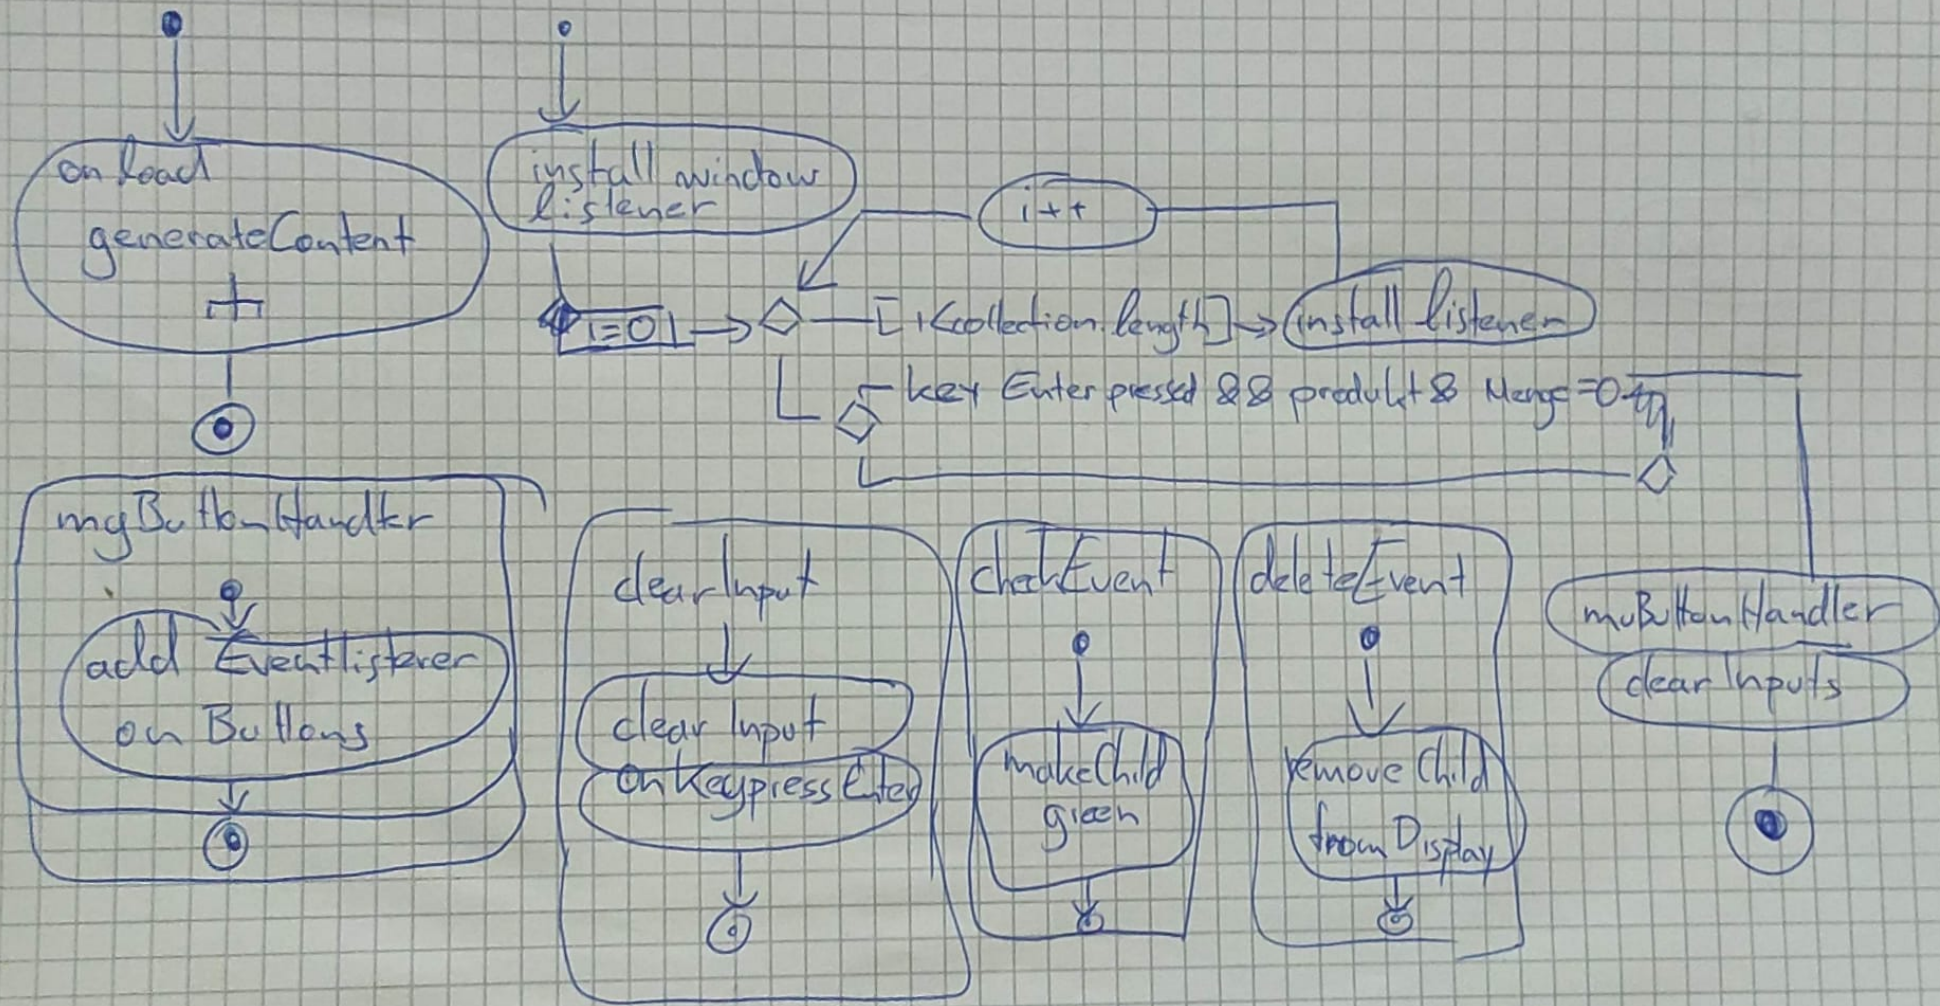 onload
generateContent
install window
listener
i++
i=0
[i<collection.length]
install listener
key Enter pressed && produkt & Menge=0
myButtonHandler
add Eventlistener
on Buttons
clearInput
clear Input
onKeypressEnter
checkEvent
makeChild
green
deleteEvent
remove Child
from Display
myButtonHandler
clear Inputs